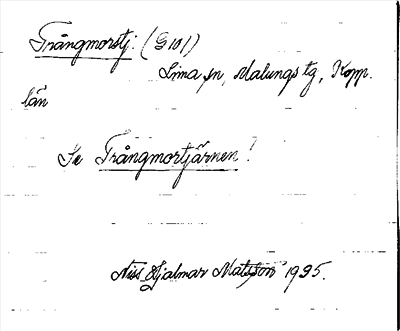 Trångmorstj: (G 101)
Lima sn, Malungs tg, Kopp.
län
Se Trångmortjärnen!
Niss Hjalmar Matsson 1935.